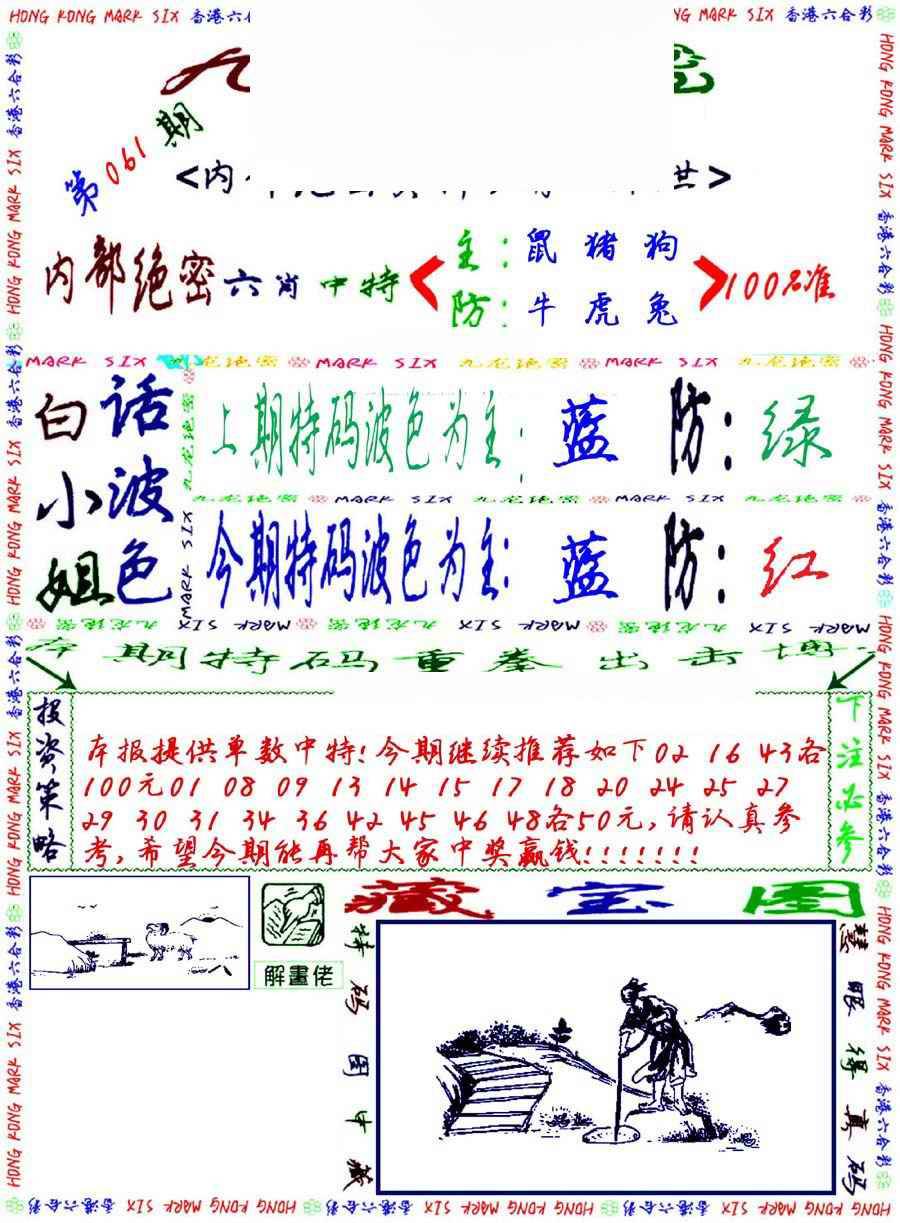 HONG KONG MARK SIX 香港六合彩
第061期
内部绝密六肖中特
主:鼠 猪 狗
防:牛 虎 兔
100%准
MARK SIX 九龙绝密 MARK SIX 九龙绝密 MARK SIX 九龙绝密
白话小波姐色
上期特码波色为主: 蓝 防: 绿
九龙绝密 MARK SIX 九龙绝密 MARK SIX 九龙绝密
今期特码波色为主: 蓝 防: 红
九龙绝密 MARK SIX 九龙绝密 MARK SIX 九龙绝密 MARK SIX
本期特码重拳出击
投资策略
本报提供单数中特!今期继续推荐如下02 16 43各
100元01 08 09 13 14 15 17 18 20 24 25 27
29 30 31 34 36 42 45 46 48各50元,请认真参
考,希望今期能再帮大家中奖赢钱!!!!!!!
下注必参
解畫佬
藏宝图
特码图中藏
慧眼得真码
HONG KONG MARK SIX 香港六合彩